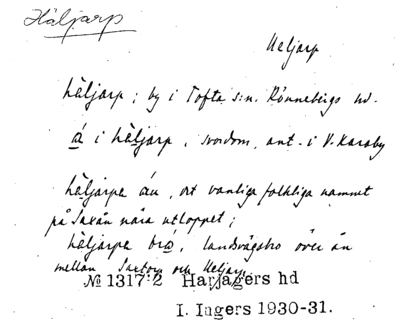 Häljarp
Heljarp
häljarp; by i Tofta s:n. Rönnebergs hd.
å i häljarp, svordom, ant. i V. Karaby
häljarpa ån, det vanliga folkliga namnet
på Saxån nära utloppet;
häljarpa bro, landsvägsbro över ån
mellan Saxtorp och Heljarp
№ 1317:2 Harjagers hd
I. Ingers 1930-31.